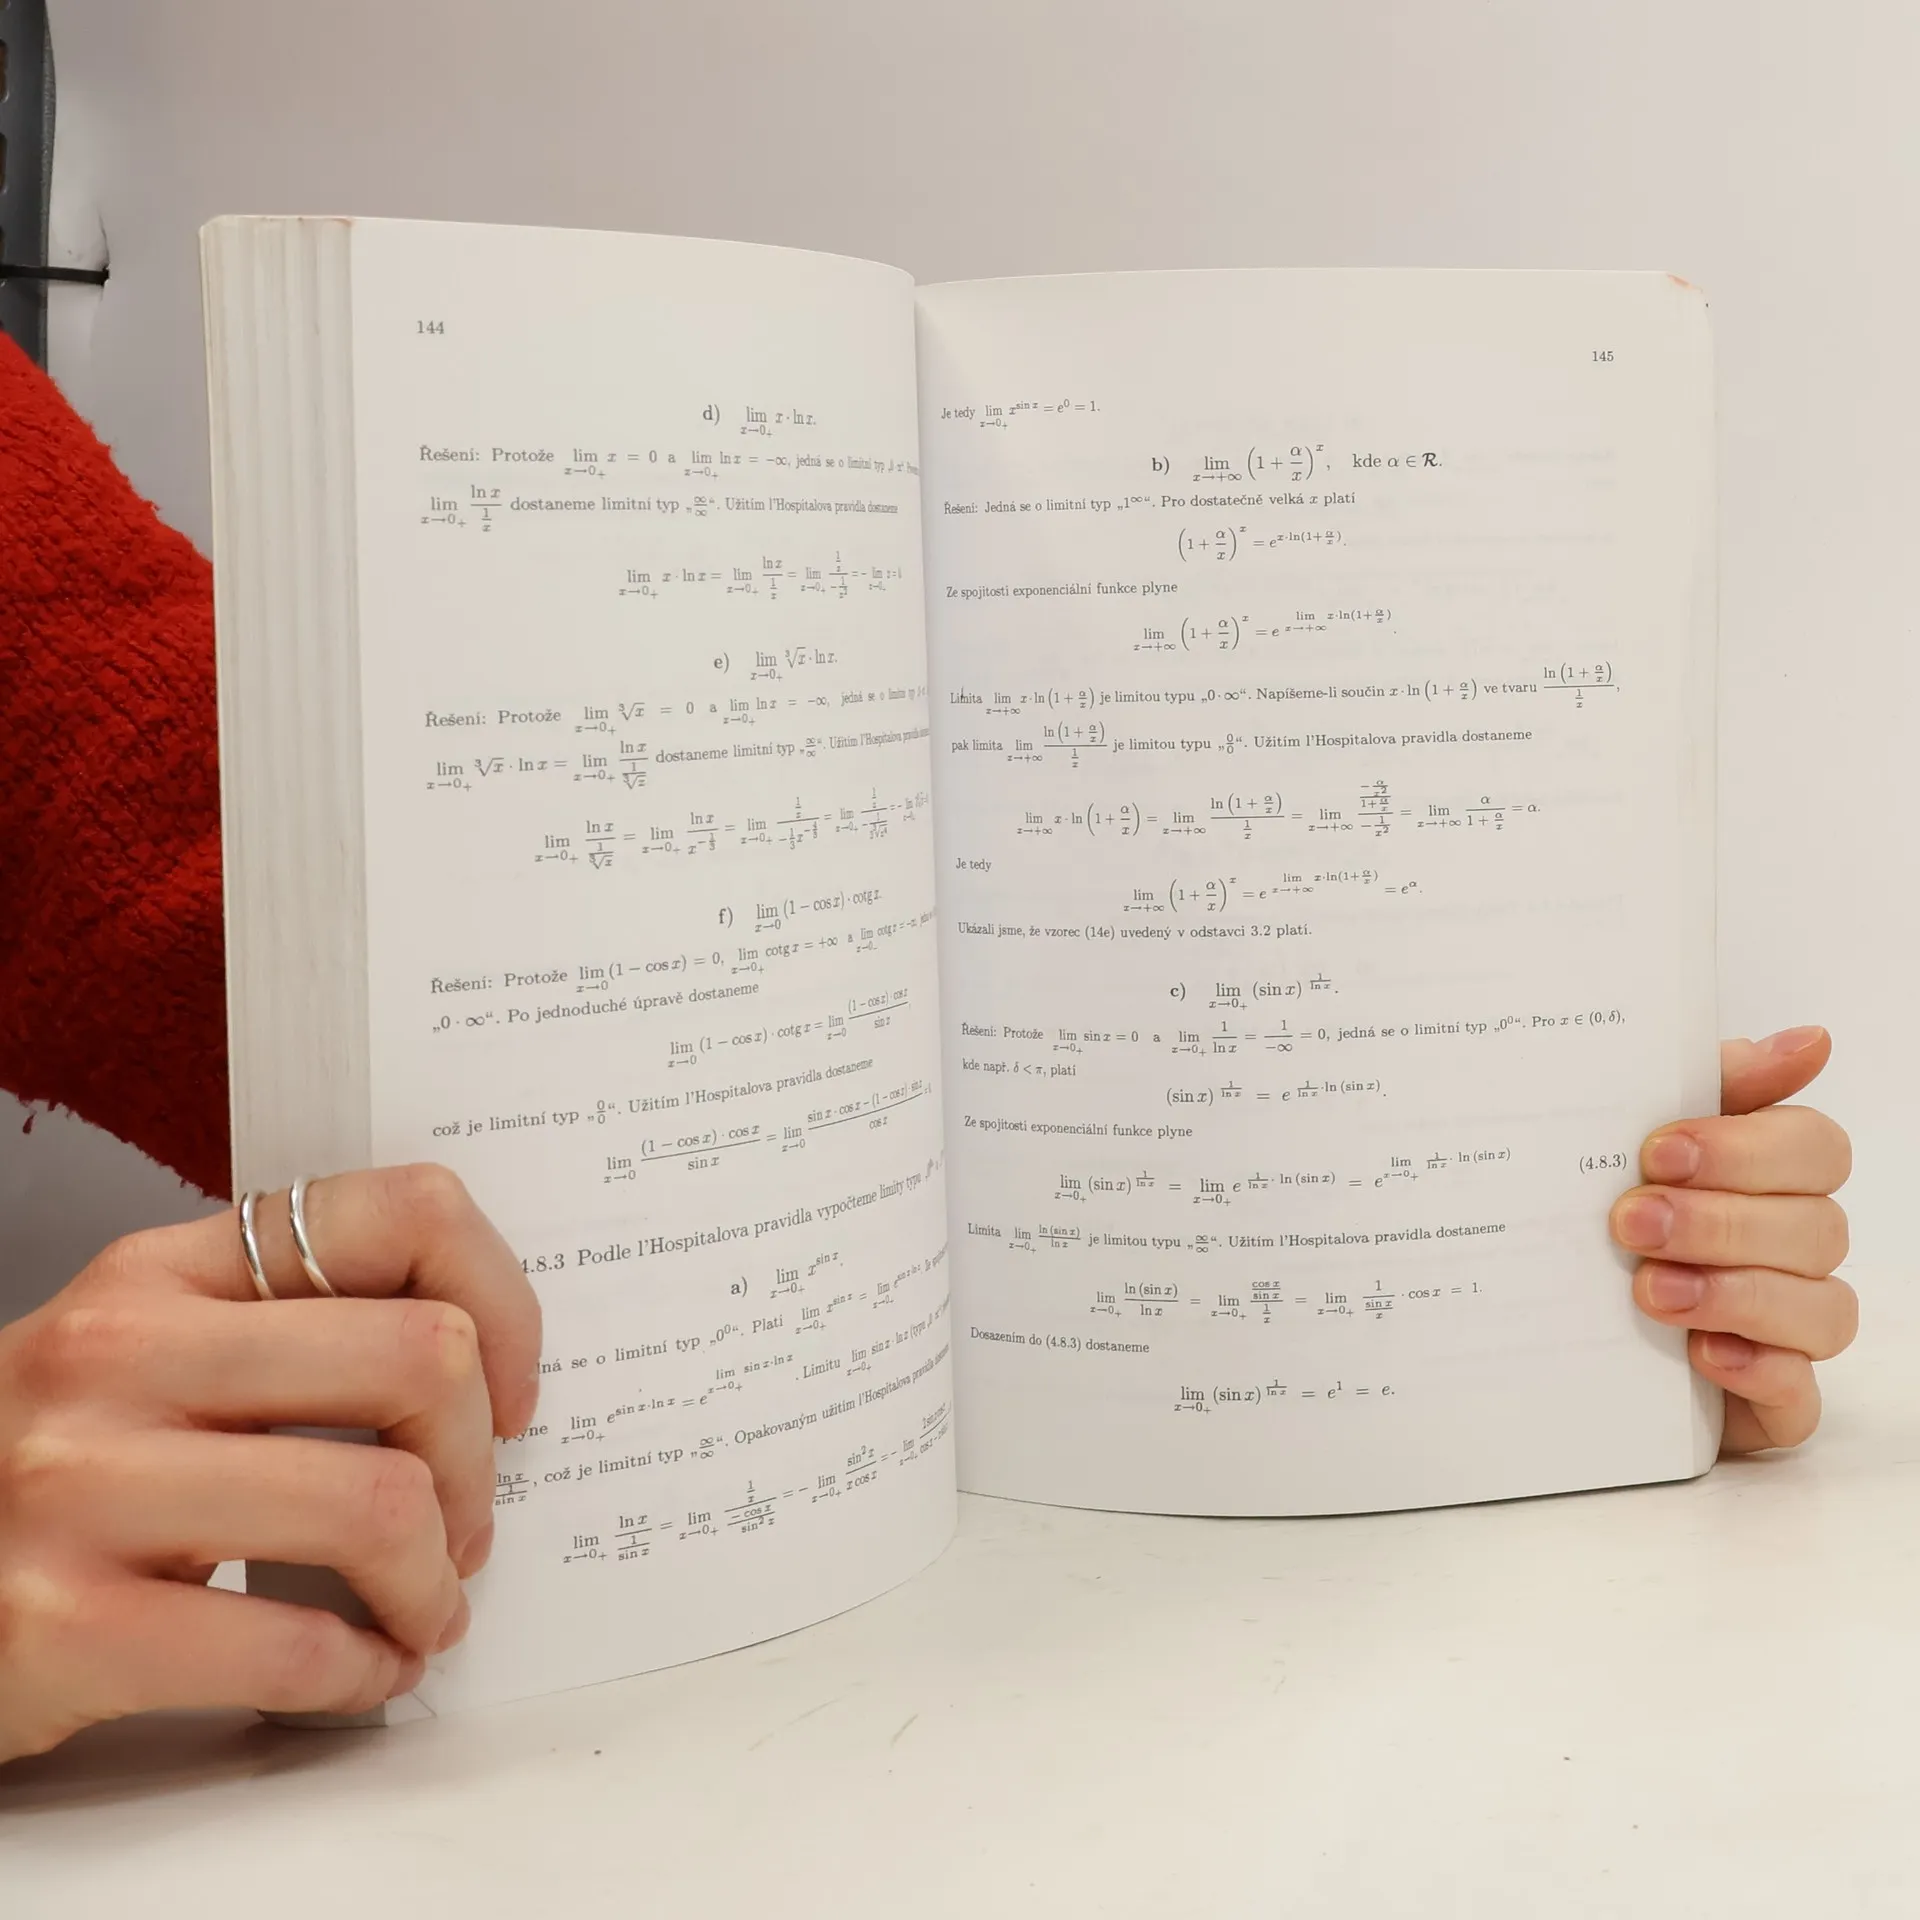 144
d) lim x→0+ x · ln x.
Řešení: Protože lim x→0+ x = 0 a lim x→0+ ln x = −∞, jedná se o limitní typ
lim x→0+ ln x / (1/x) dostaneme limitní typ „∞/∞“. Užitím l'Hospitalova pravidla dostaneme
lim x→0+ x · ln x = lim x→0+ ln x / (1/x) = lim x→0+ (1/x) / (−1/x²) = − lim x→0+ x =
e) lim x→0+ ∛x · ln x.
Řešení: Protože lim x→0+ ∛x = 0 a lim x→0+ ln x = −∞, jedná se o limitní typ
lim x→0+ ∛x · ln x = lim x→0+ ln x / (1/∛x) dostaneme limitní typ „∞/∞“. Užitím l'Hospitalova pravidla
lim x→0+ ln x / (1/∛x) = lim x→0+ ln x / x^(−1/3) = lim x→0+ (1/x) / (−1/3 x^(−4/3)) = lim x→0+
f) lim x→0 (1 − cos x) · cotg x.
Řešení: Protože lim x→0 (1 − cos x) = 0, lim x→0+ cotg x = +∞ a lim x→0− cotg x = −∞,
„0 · ∞“. Po jednoduché úpravě dostaneme
lim x→0 (1 − cos x) · cotg x = lim x→0 (1 − cos x) · cos x / sin x
což je limitní typ „0/0“. Užitím l'Hospitalova pravidla dostaneme
lim x→0 (1 − cos x) · cos x / sin x = lim x→0 (sin x · cos x − (1 − cos x) · sin x) / cos x
4.8.3 Podle l'Hospitalova pravidla vypočteme limity typu
a) lim x→0+ x^(sin x).
se o limitní typ „0⁰“. Platí lim x→0+ x^(sin x) = lim x→0+ e^(sin x·ln x).
lim x→0+ e^(sin x·ln x) = e^(lim x→0+ sin x·ln x). Limitu lim x→0+ sin x · ln x (typu
ln x / (1/sin x), což je limitní typ „∞/∞“. Opakovaným užitím l'Hospitalova pravidla
lim x→0+ ln x / (1/sin x) = lim x→0+ (1/x) / (−cos x/sin² x) = − lim x→0+ sin² x / (x cos x) = − lim x→0+
145
Je tedy lim x→0+ x^(sin x) = e⁰ = 1.
b) lim x→+∞ (1 + α/x)^x, kde α ∈ R.
Řešení: Jedná se o limitní typ „1^∞“. Pro dostatečně velká x platí
(1 + α/x)^x = e^(x·ln(1+α/x)).
Ze spojitosti exponenciální funkce plyne
lim x→+∞ (1 + α/x)^x = e^(lim x→+∞ x·ln(1+α/x)).
Limita lim x→+∞ x · ln (1 + α/x) je limitou typu „0 · ∞“. Napíšeme-li součin x · ln (1 + α/x) ve tvaru ln (1 + α/x) / (1/x),
pak limita lim x→+∞ ln (1 + α/x) / (1/x) je limitou typu „0/0“. Užitím l'Hospitalova pravidla dostaneme
lim x→+∞ x · ln (1 + α/x) = lim x→+∞ ln (1 + α/x) / (1/x) = lim x→+∞ ((−α/x²) / (1+α/x)) / (−1/x²) = lim x→+∞ α / (1 + α/x) = α.
Je tedy
lim x→+∞ (1 + α/x)^x = e^(lim x→+∞ x·ln(1+α/x)) = e^α.
Ukázali jsme, že vzorec (14e) uvedený v odstavci 3.2 platí.
c) lim x→0+ (sin x)^(1/ln x).
Řešení: Protože lim x→0+ sin x = 0 a lim x→0+ 1/ln x = 1/−∞ = 0, jedná se o limitní typ „0⁰“. Pro x ∈ (0, δ),
kde např. δ < π, platí
(sin x)^(1/ln x) = e^(1/ln x · ln (sin x)).
Ze spojitosti exponenciální funkce plyne
lim x→0+ (sin x)^(1/ln x) = lim x→0+ e^(1/ln x · ln (sin x)) = e^(lim x→0+ 1/ln x · ln (sin x)) (4.8.3)
Limita lim x→0+ ln (sin x) / ln x je limitou typu „∞/∞“. Užitím l'Hospitalova pravidla dostaneme
lim x→0+ ln (sin x) / ln x = lim x→0+ (cos x/sin x) / (1/x) = lim x→0+ 1 / (sin x/x) · cos x = 1.
Dosazením do (4.8.3) dostaneme
lim x→0+ (sin x)^(1/ln x) = e¹ = e.